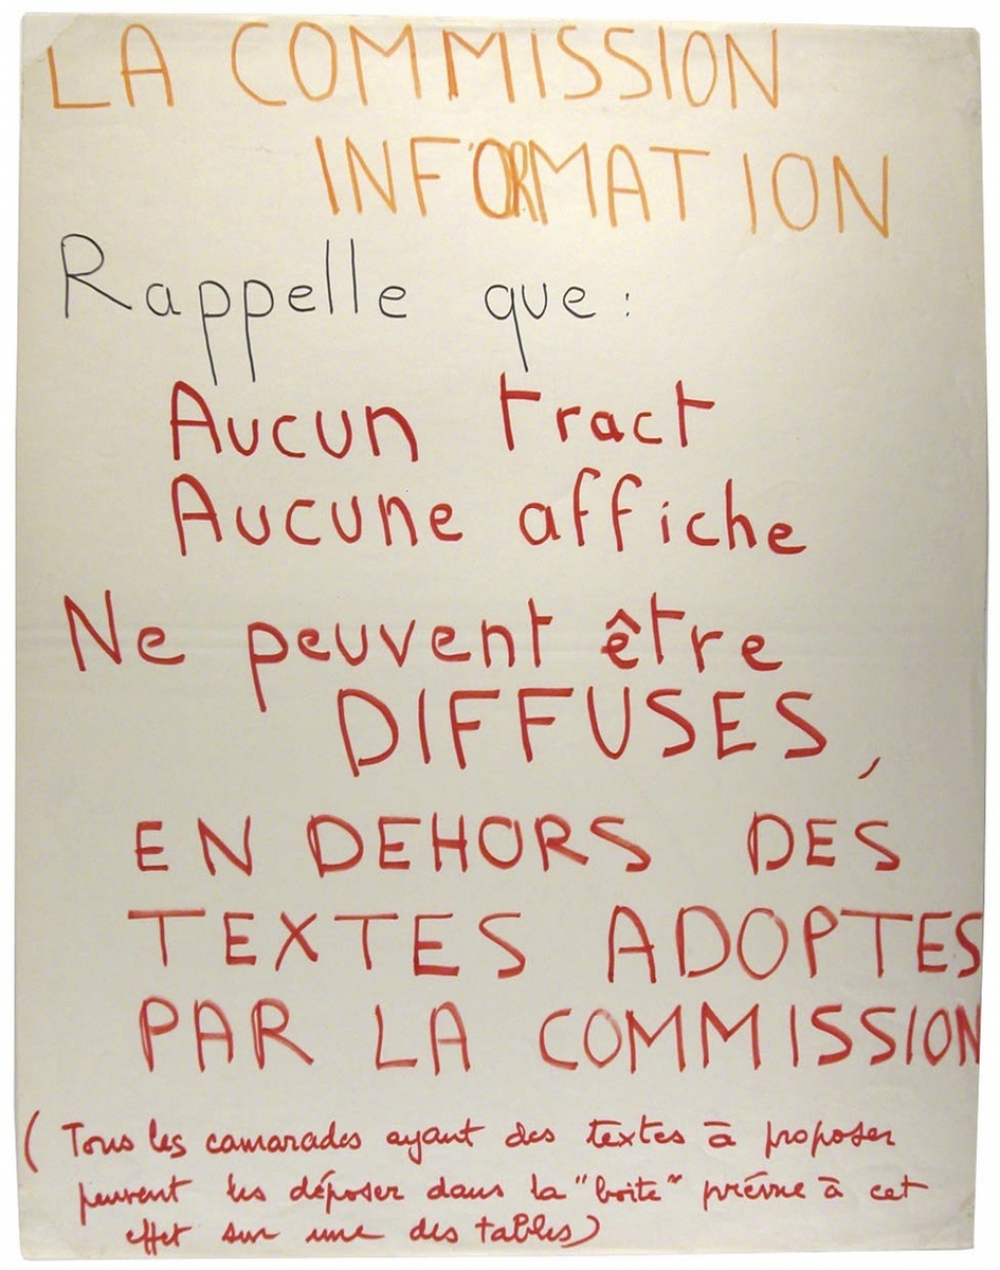 LA COMMISSION
INFORMATION
Rappelle que :
Aucun tract
Aucune affiche
Ne peuvent être
DIFFUSES,
EN DEHORS DES
TEXTES ADOPTES
PAR LA COMMISSION
( Tous les camarades ayant des textes à proposer
peuvent les déposer dans la "boite" prévue à cet
effet sur une des tables)